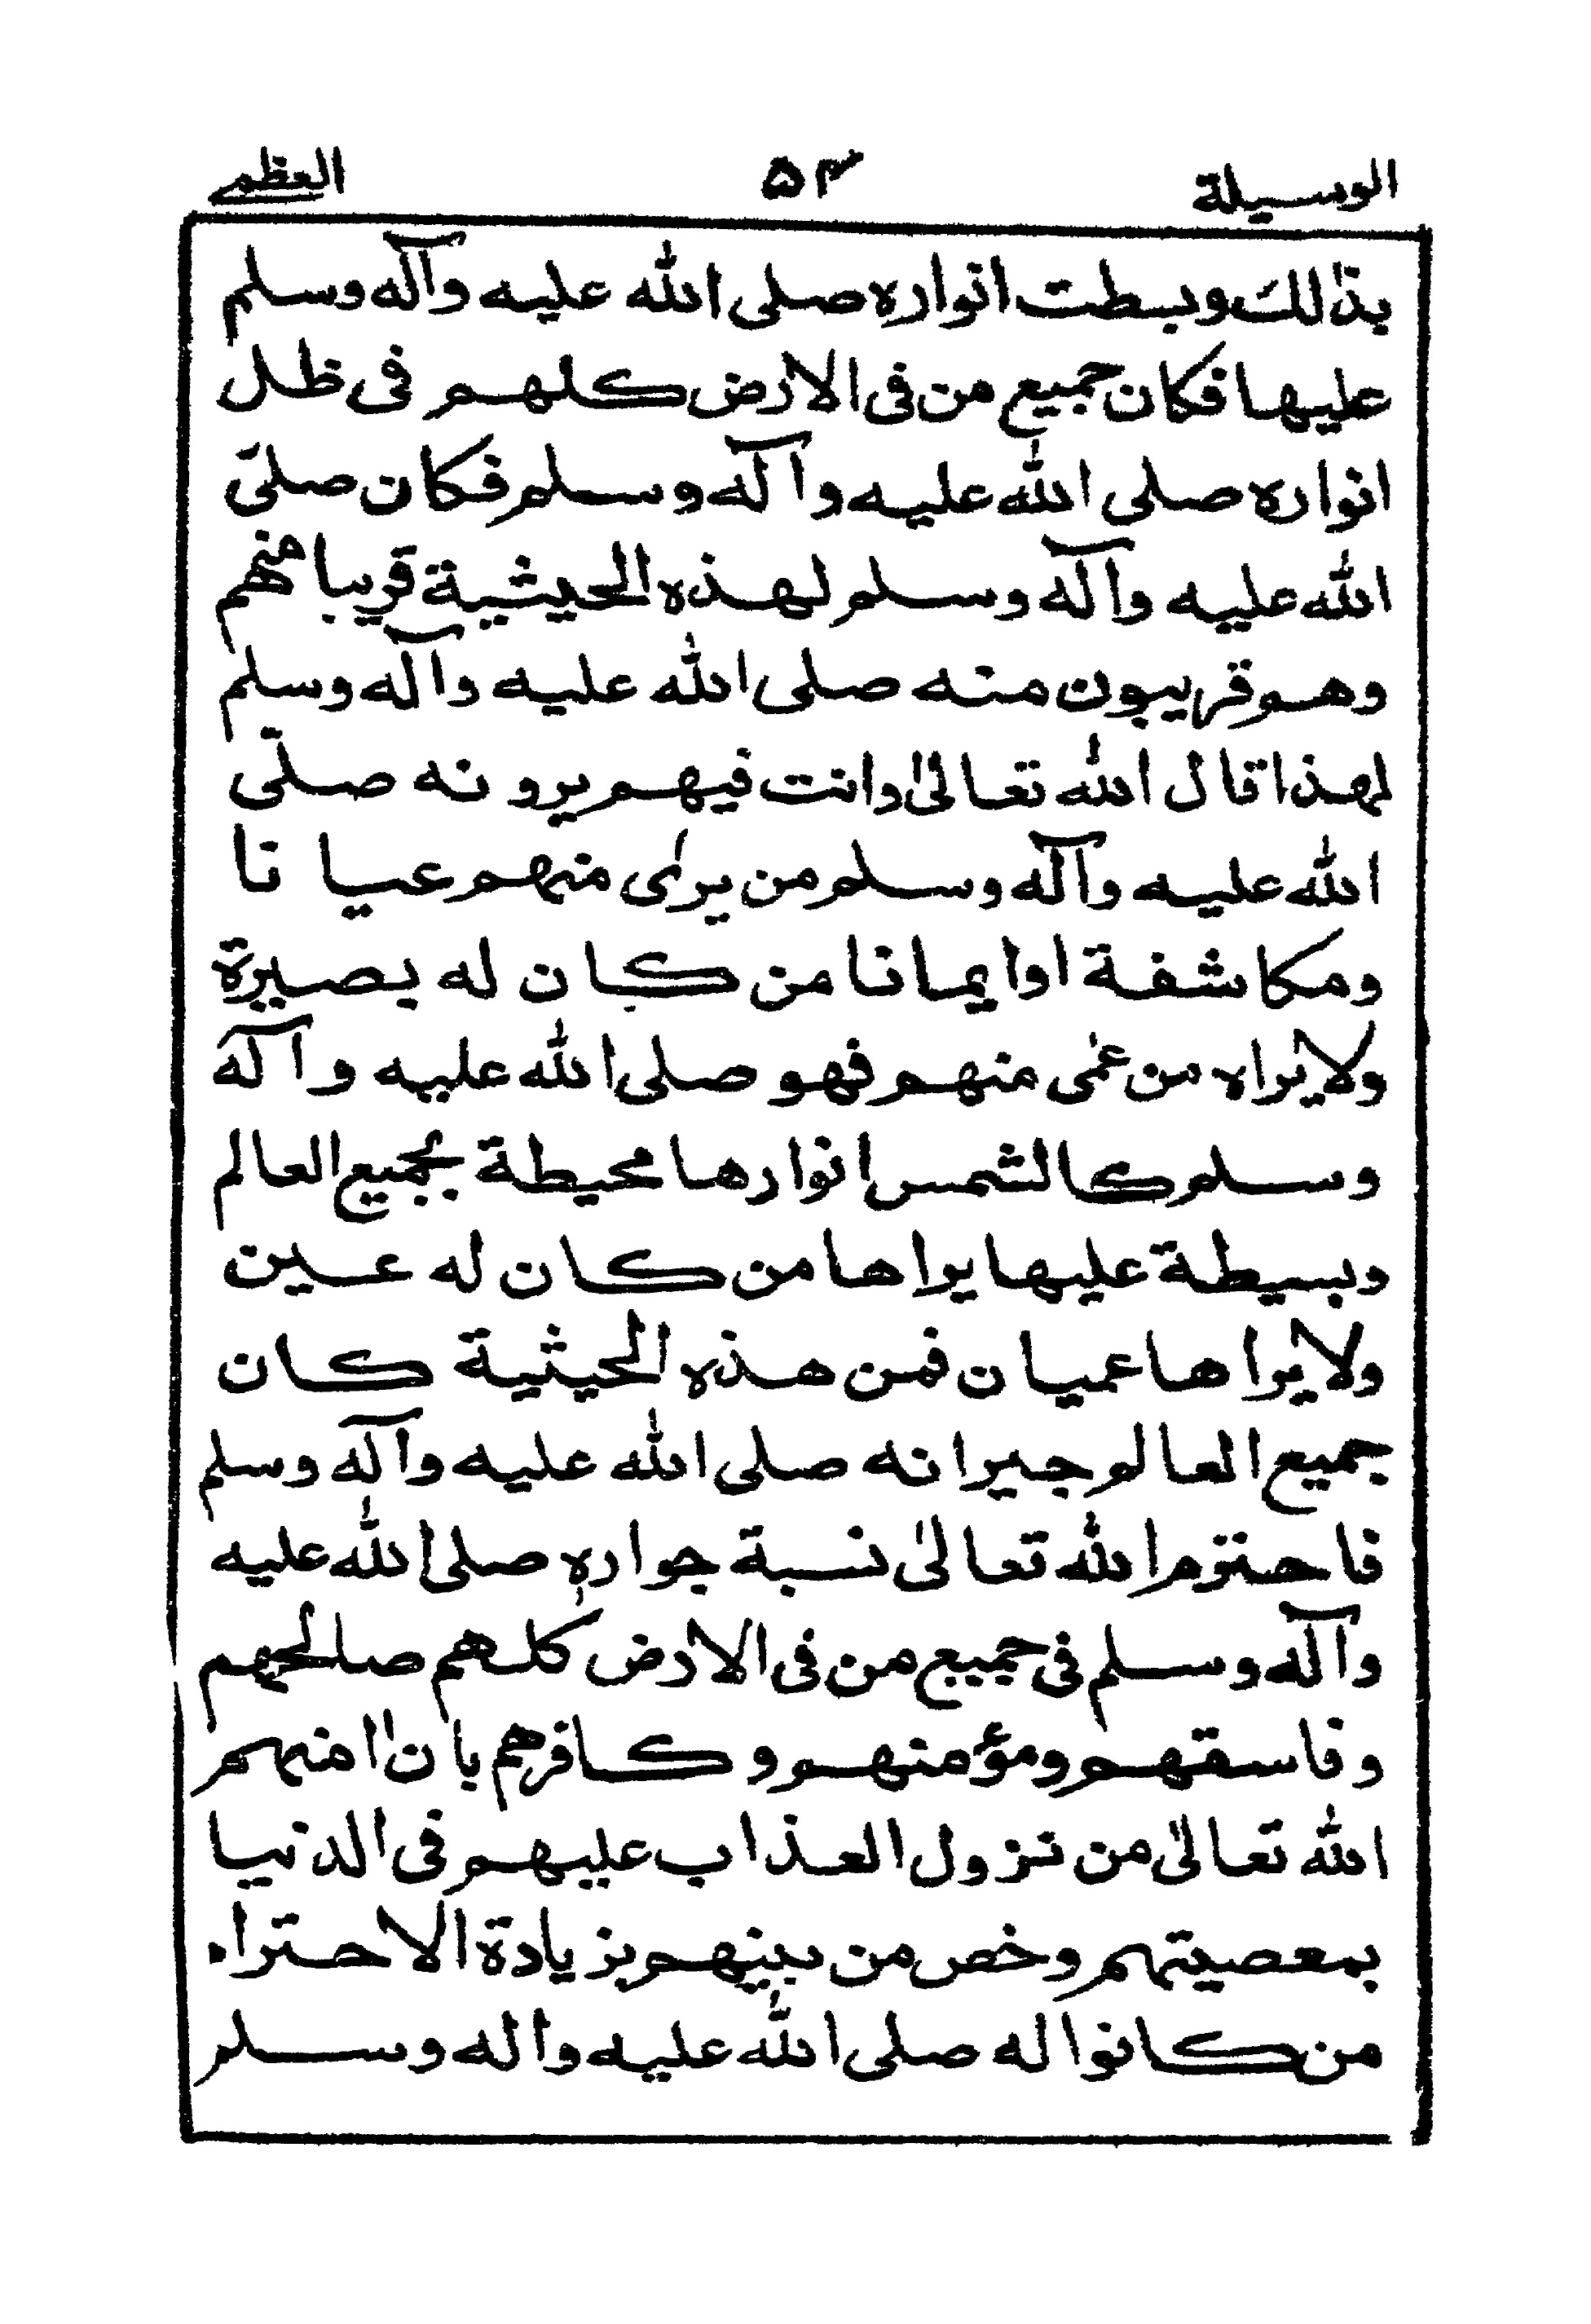 الوسيلة ۵۴ العظمے
بذٰلك وبسطت انواره صلى الله عليه وآله وسلم
عليها فكان جميع من فى الارض كلهم فى ظل
انواره صلى الله عليه وآله وسلم فكان صلّى
الله عليه وآله وسلم لهذه الحيثية قريبا منهم
وهم قريبون منه صلى الله عليه وآله وسلم
لهذا قال الله تعالىٰ وانت فيهم يرونه صلّى
الله عليه وآله وسلم من يرىٰ منهم عيانا
ومكاشفة او ايمانا من كان له بصيرة
ولا يراه من عمٰى منهم فهو صلى الله عليه وآله
وسلم كالشمس انوارها محيطة بجميع العالم
وبسيطة عليها يراها من كان له عين
ولا يراها عميان فمن هذه الحيثية كان
جميع العالم جيرانه صلى الله عليه وآله وسلم
فاحترم الله تعالىٰ نسبة جواره صلى الله عليه
وآله وسلم فى جميع من فى الارض كلهم صالحهم
وفاسقهم ومؤمنهم وكافرهم بان اٰمنهم
الله تعالىٰ من نزول العذاب عليهم فى الدنيا
بمعصيتهم وخص من بينهم بزيادة الاحترام
من كانوا له صلى الله عليه واله وسلم